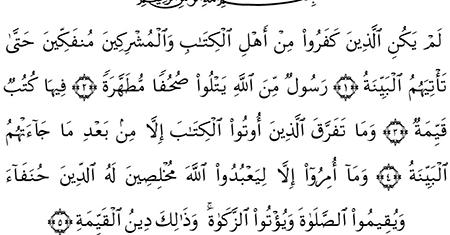 لَمْ يَكُنِ ٱلَّذِينَ كَفَرُوا۟ مِنْ أَهْلِ ٱلْكِتَٰبِ وَٱلْمُشْرِكِينَ مُنفَكِّينَ حَتَّىٰ
تَأْتِيَهُمُ ٱلْبَيِّنَةُ ﴿١﴾ رَسُولٌ مِّنَ ٱللَّهِ يَتْلُوا۟ صُحُفًا مُّطَهَّرَةً ﴿٢﴾ فِيهَا كُتُبٌ
قَيِّمَةٌ ﴿٣﴾ وَمَا تَفَرَّقَ ٱلَّذِينَ أُوتُوا۟ ٱلْكِتَٰبَ إِلَّا مِنۢ بَعْدِ مَا جَآءَتْهُمُ
ٱلْبَيِّنَةُ ﴿٤﴾ وَمَآ أُمِرُوٓا۟ إِلَّا لِيَعْبُدُوا۟ ٱللَّهَ مُخْلِصِينَ لَهُ ٱلدِّينَ حُنَفَآءَ
وَيُقِيمُوا۟ ٱلصَّلَوٰةَ وَيُؤْتُوا۟ ٱلزَّكَوٰةَ ۚ وَذَٰلِكَ دِينُ ٱلْقَيِّمَةِ ﴿٥﴾